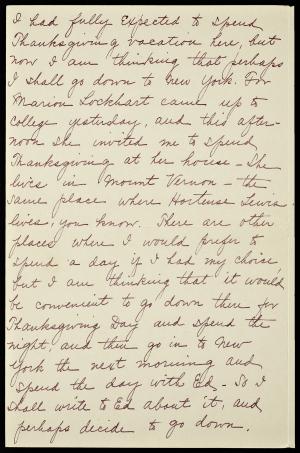 I had fully expected to spend
Thanksgiving vacation here, but
now I am thinking that perhaps
I shall go down to New York. For
Marion Lockhart came up to
college yesterday, and this after-
noon she invited me to spend
Thanksgiving at her house - She
lives in Mount Vernon - the
same place where Hortense Lewis
lives, you know. There are other
places where I would prefer to
spend a day if I had my choice
but I am thinking that it would
be convenient to go down there for
Thanksgiving Day and spend the
night, and then go in to New
York the next morning and
spend the day with Ed. So I
shall write to Ed about it, and
perhaps decide to go down.